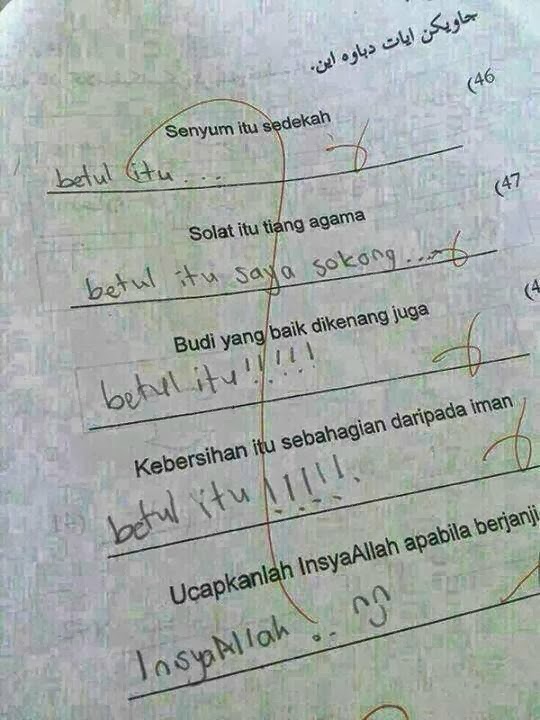 جاويكن ايات دباوه اين.
(46
Senyum itu sedekah
betul itu...
(47
Solat itu tiang agama
betul itu saya sokong...
(4
Budi yang baik dikenang juga
betul itu!!!!!
Kebersihan itu sebahagian daripada iman
betul itu !!!!!.
Ucapkanlah InsyaAllah apabila berjanji
InsyaAllah ..